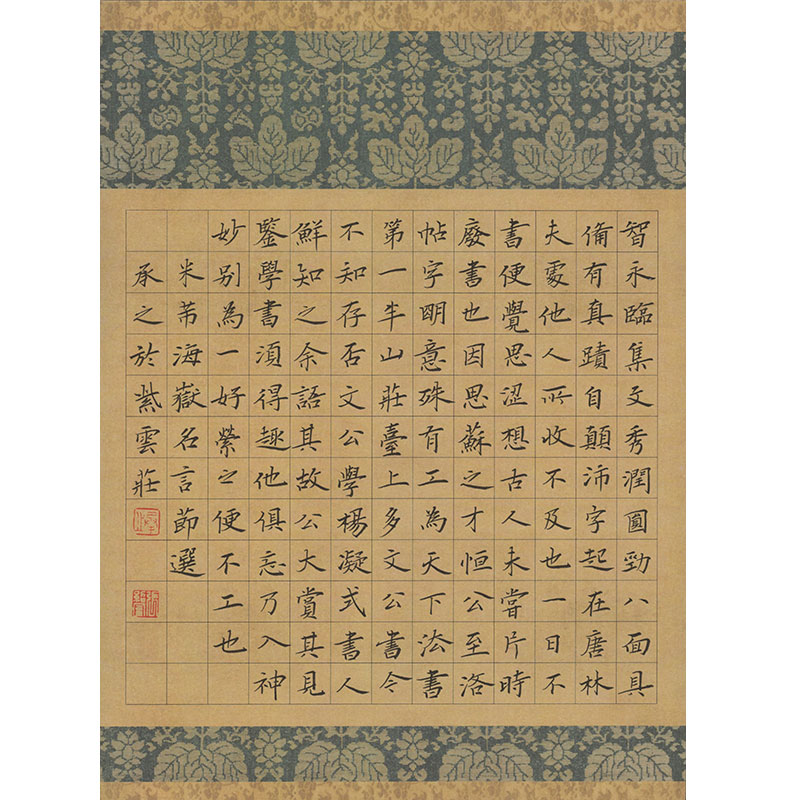 智永臨集文秀潤圓勁八面具
俻有真蹟自顛沛字起在唐林
夫處他人所收不及也一日不
書便覺思澀想古人未嘗片時
廢書也因思蘇之才恒公至洛
帖字明意殊有工為天下法書
第一半山莊臺上多文公書今
不知存否文公學楊凝式書人
鮮知之余語其故公大賞其見
鑒學書須得趣他俱忘乃入神
妙別為一好縈之便不工也
米芾海嶽名言節選
承之於紫雲莊